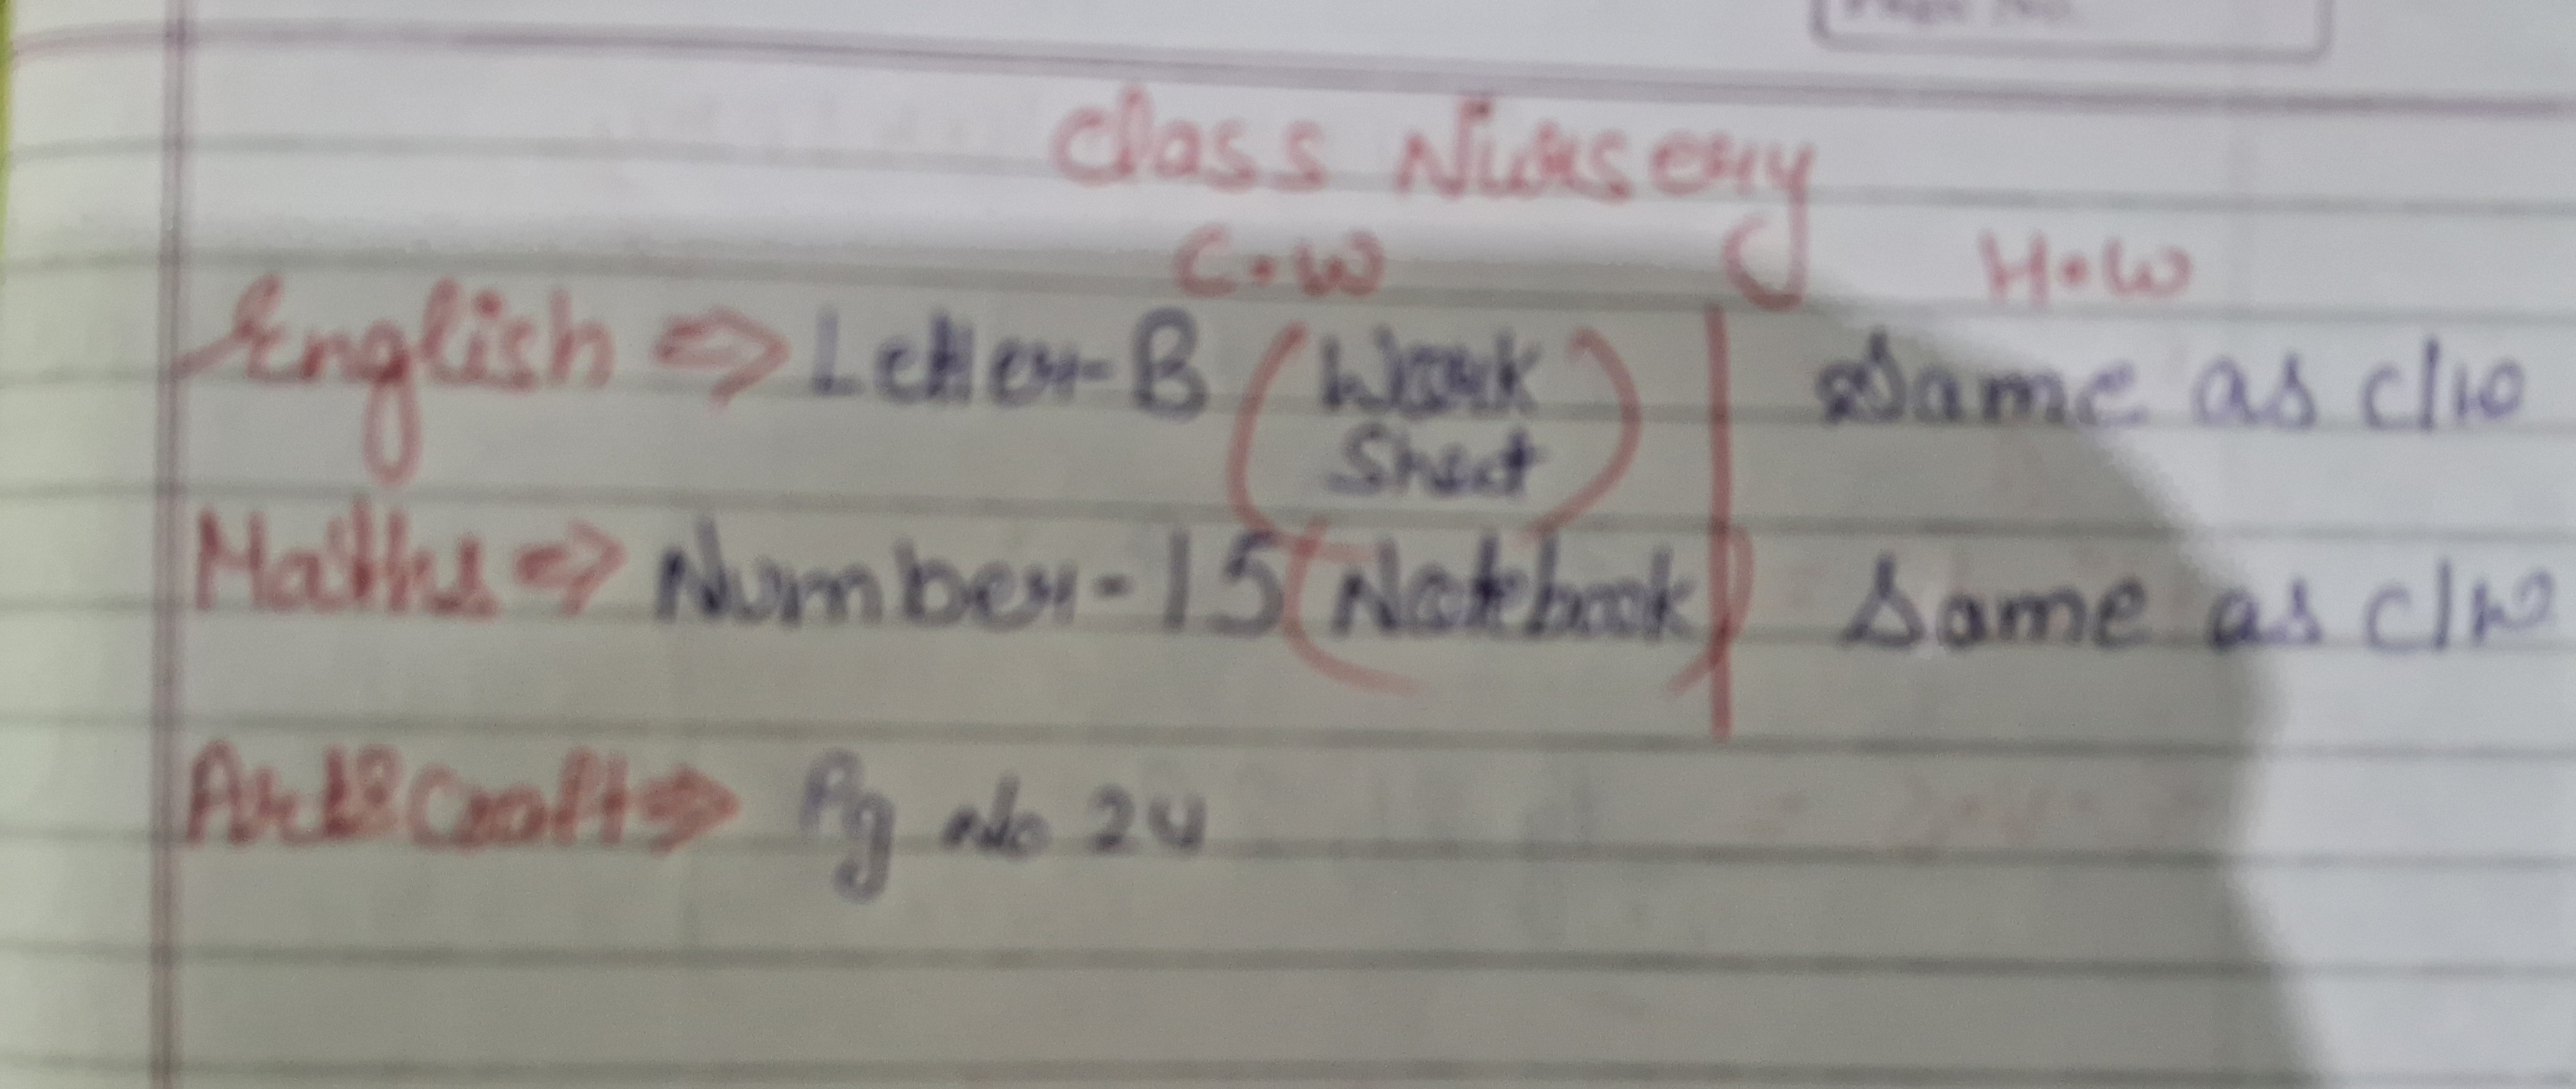 Page No.
Class Nursery
C.W H.W
English ⇒ Letter-B (Work Sheet) | Same as c/w
Maths ⇒ Number-15 (Notebook) | Same as c/w
Art & Craft ⇒ Pg No 24